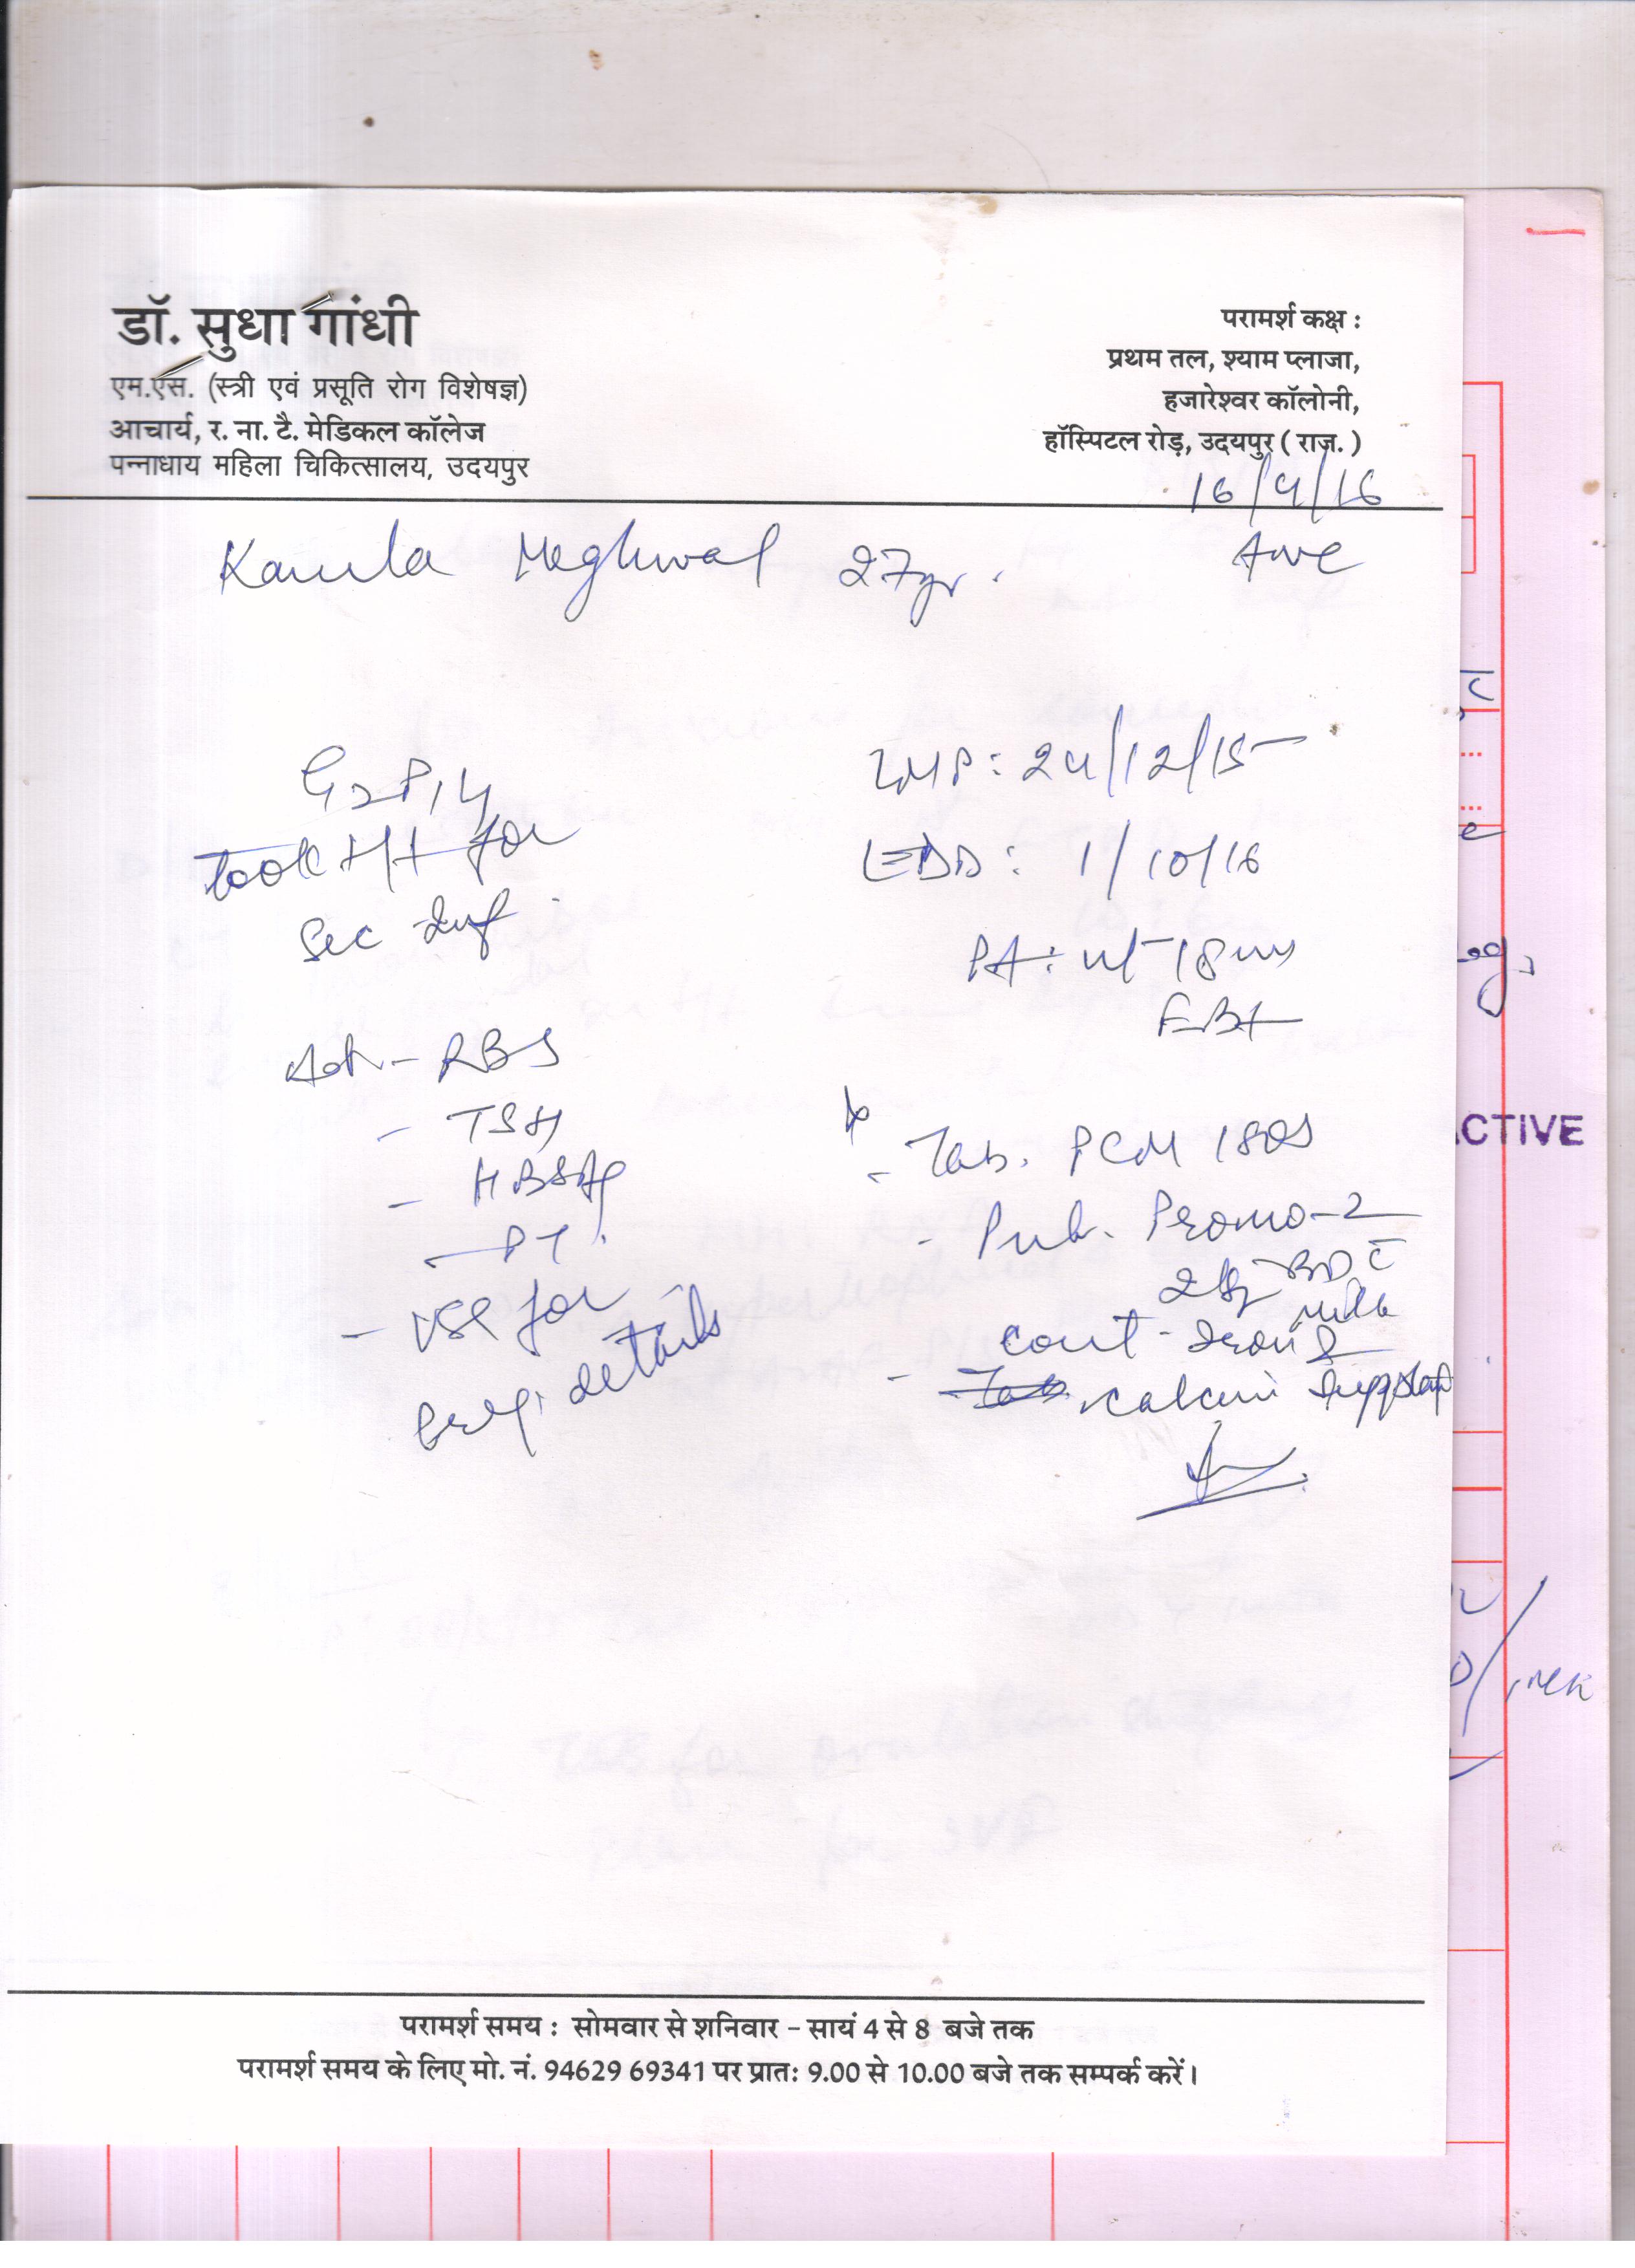 डॉ. सुधा गांधी
एम.एस. (स्त्री एवं प्रसूति रोग विशेषज्ञ)
आचार्य, र. ना. टै. मेडिकल कॉलेज
पन्नाधाय महिला चिकित्सालय, उदयपुर
परामर्श कक्ष :
प्रथम तल, श्याम प्लाजा,
हजारेश्वर कॉलोनी,
हॉस्पिटल रोड़, उदयपुर ( राज. )
16/4/16
Kamla Meghwal 27yr.
G2P1L1
took t/t for
Sec Inf.
Adv - RBS
- TSH
- HBSAg
- PT.
- USG for
details
LMP: 24/12/15
EDD: 1/10/16
PA: ut 18
Tab. PCM
- Pub. Promo-2
BD c̄
milk
cont - Iron &
- calcium
ACTIVE
परामर्श समय : सोमवार से शनिवार - सायं 4 से 8 बजे तक
परामर्श समय के लिए मो. नं. 94629 69341 पर प्रातः 9.00 से 10.00 बजे तक सम्पर्क करें।